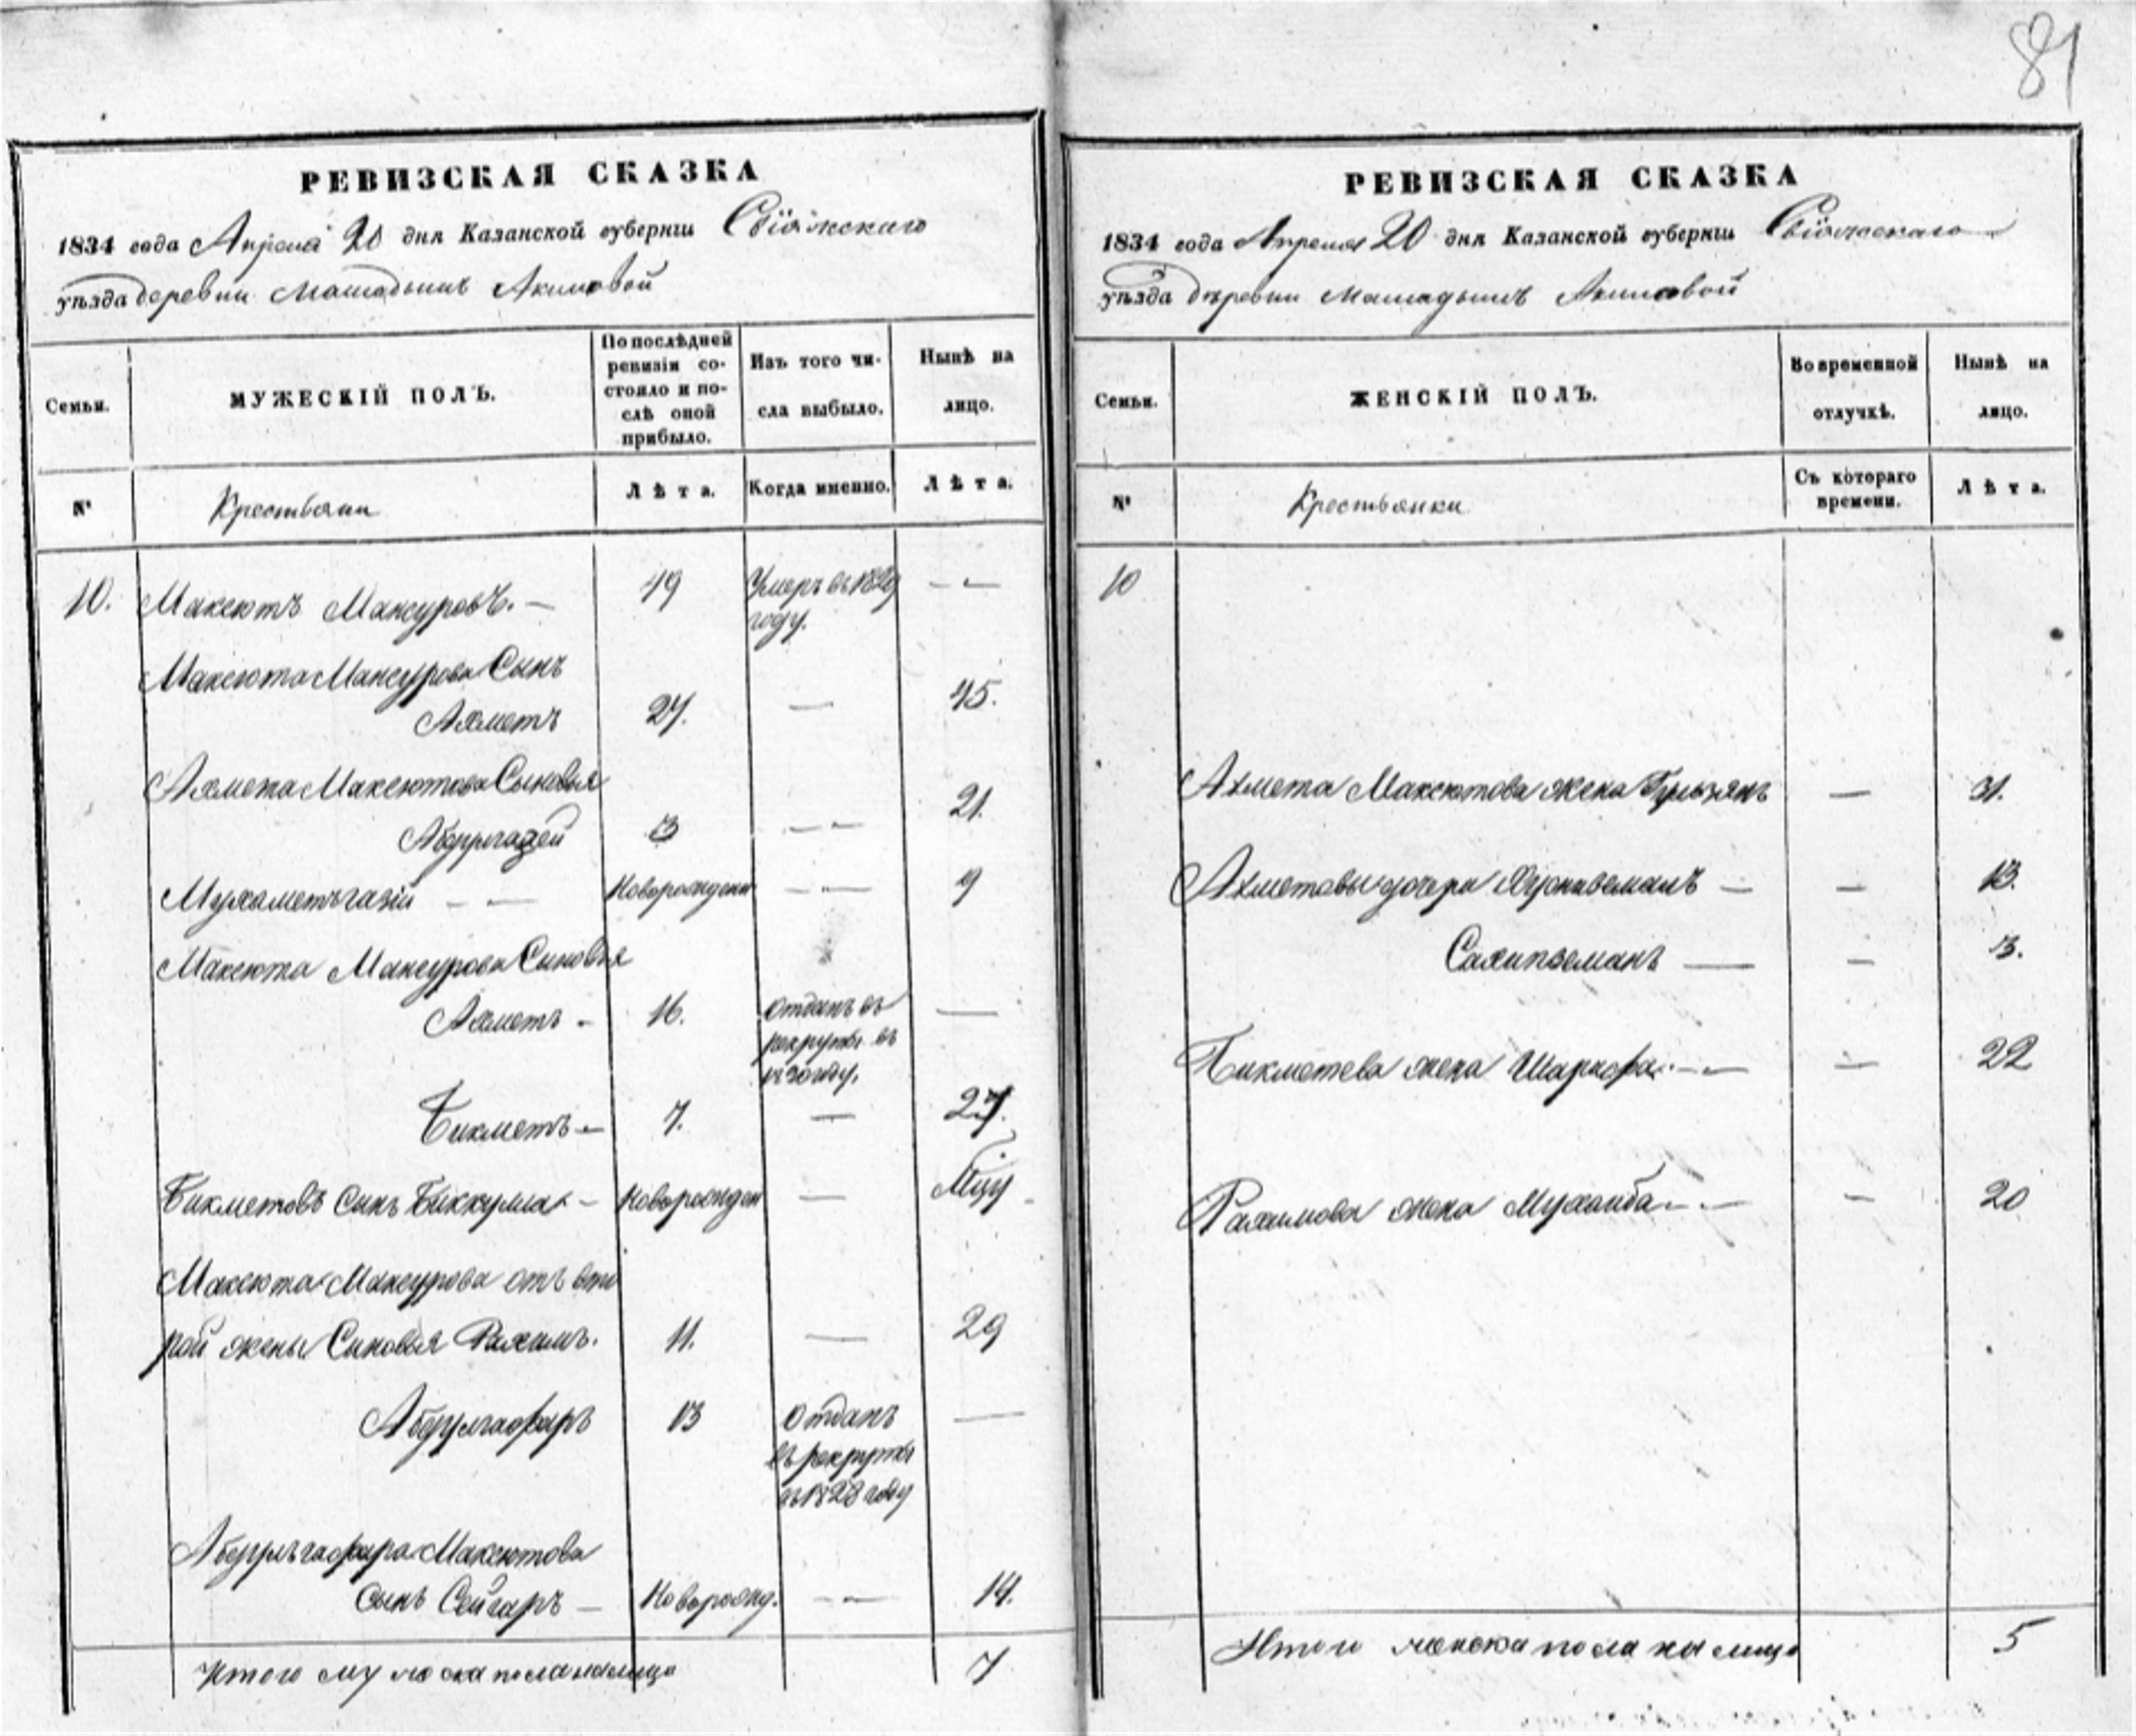 81
РЕВИЗСКАЯ СКАЗКА
1834 года Апреля 20 дня Казанской губерніи Свіяжскаго
уѣзда деревни Молодышъ Акимовой
Семьи.
МУЖЕСКІЙ ПОЛЪ.
По послѣдней ревизіи со-
стояло и по-
слѣ оной
прибыло.
Изъ того чи-
сла выбыло.
Нынѣ на
лицо.
№
Крестьяни
Лѣта.
Когда именно.
Лѣта.
10. Максютъ Мансуровъ. — 49 Умеръ въ 1829 году. — —
Максюта Мансурова Сынъ
Ахметъ 27. — 45.
Ахмета Максютова Сыновья
Абдулгазей 3 — — 21.
Мухаметьгазіи — — Новорожденн — — 9
Максюта Мансурова Сыновья
Ахметъ - 16. отданъ въ рекруты въ году. —
Бикметъ — 7. — 27.
Бикметовъ Сынъ Биккула - Новорожден —
Максюта Мансурова отъ вто
рой жены Сыновья Рахимъ. 11. — 29
Абдулгафаръ 13 отданъ въ рекруты въ 1828 году —
Абдулъгафара Максютова
сынъ Сейгаръ — Новорожд. — — 14.
Итого мужеска пола налицо 7
РЕВИЗСКАЯ СКАЗКА
1834 года Апреля 20 дня Казанской губерніи Свіяжскаго
уѣзда деревни Молодышъ Акимовой
Семьи.
ЖЕНСКІЙ ПОЛЪ.
Во временной
отлучкѣ.
Нынѣ на
лицо.
№
Крестьянки
Съ котораго
времени.
Лѣта.
10
Ахмета Максютова жена — 31.
Ахметовы дочери Хусниземанъ — — 13.
Сахипземанъ — — 3.
Бикметева жена Шарифа — — 22
Рахимова жена Мухаиба — — 20
Итого женска пола на лицо 5